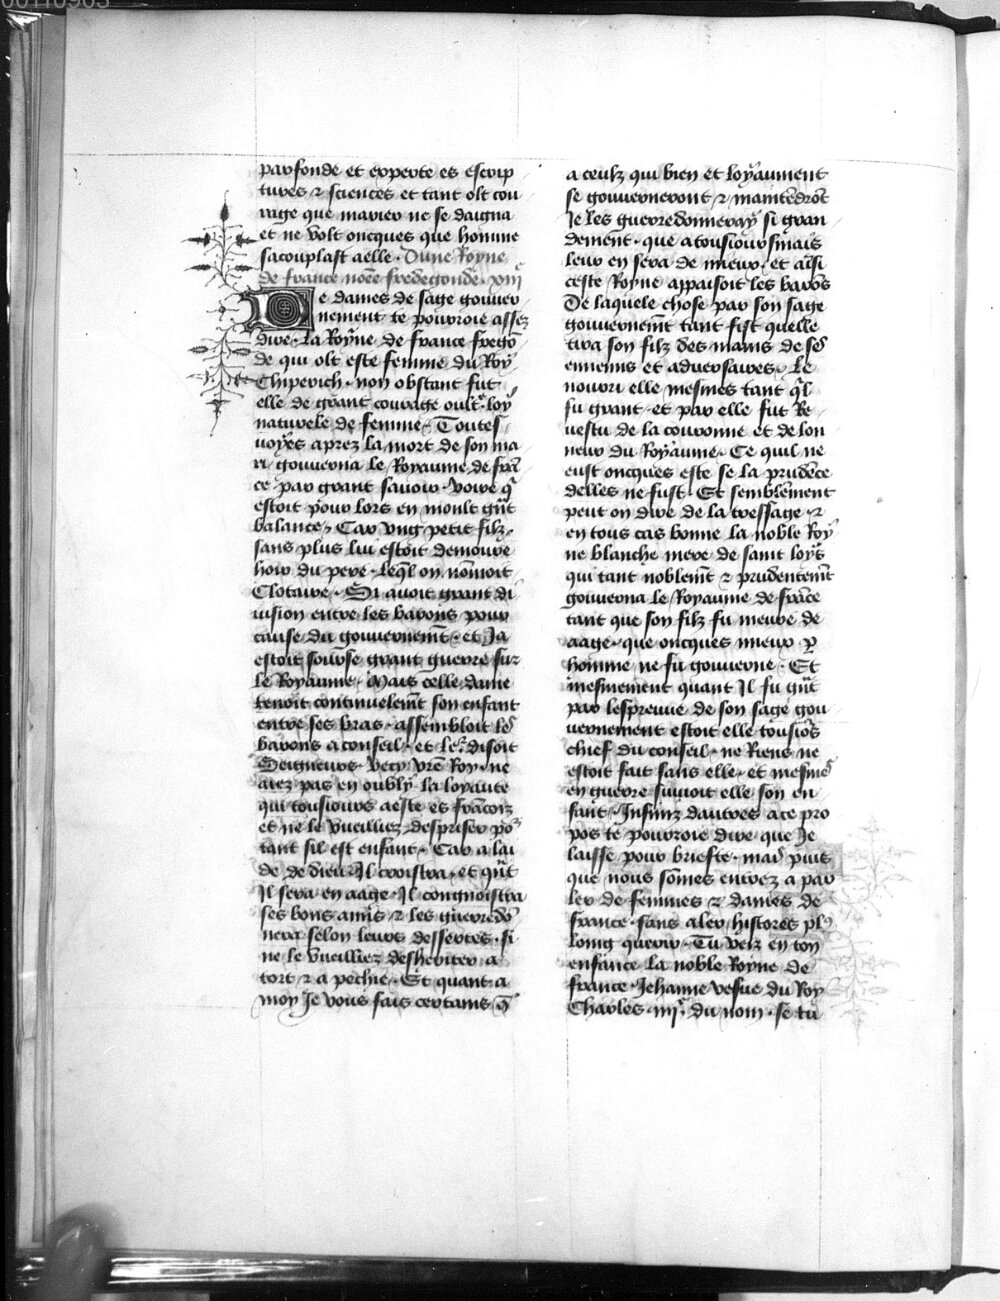 00110903
parfonde et experte es escrip
tures ⁊ sciences et tant olt cou
rage que marier ne se daigna
et ne volt oncques que homme
sacouplast a elle · Dune Royne
de france nõee fredegonde · xiii
De dames de sage gouver
nement te pourroie assez
dire · La Royne de france frego
de qui olt este femme du Roy
Chiperich · non obstant fut
elle de grant courage oultre loy
naturele de femme · Toutes
voyes aprez la mort de son ma
ri gouverna le Royaume de frã
ce par grant savoir · voire q̃
estoit pour lors en moult gñt
balance · Car ung petit filz
sans plus lui estoit demoure
hoir du pere · leq̃l on nõmoit
Clotaire · Si avoit grant di
vision entre les barons pour
cause du gouvernemẽt · et Ja
estoit sourse grant guerre sur
le Royaume · Mais celle dame
tenoit continuelemẽt son enfant
entre ses bras · assembloit les
barons a conseil · et le² disoit
Seigneurs · Vecy vr̃e Roy · ne
aiez pas en oubly la loyaute
qui tousiours a este es francoiz
et ne le vueilliez despriser po²
tant sil est enfant · Car a lai
de de dieu Il croistra · et q̃nt
Il sera en aage · Il congnoistra
ses bons amis ⁊ les guerredõ
nera selon leurs dessertes · si
ne le vueilliez desheriter a
tort ⁊ a pechie · Et quant a
moy Je vous fais certains q̃
a ceulz qui bien et loyaument
se gouverneront ⁊ maintẽdrõt
Je les guerredonneray si gran
dement · que a tousiours mais
leur en sera de mieux · et aĩsi
ceste Royne appaisoit les barõs
De laquele chose par son sage
gouvernemt̃ tant fist quelle
tira son filz des mains de ses
ennemis et adversaires · Le
nourri elle mesmes tant q̃l
fu grant · et par elle fut Re
vestu de la couronne et de lon
neur du Royaume · Ce quil ne
eust oncques este se la prudẽce
delles ne fust · Et semblẽment
peut on dire de la tressage ⁊
en tous cas bonne la noble Roy
ne blanche mere de saint loys
qui tant noblemẽt ⁊ prudentemẽt
gouverna le Royaume de frãce
tant que son filz fu meure de
aage · que oncques mieux p̱
homme ne fu gouverne · Et
mesmement quant Il fu g̃nt
par lespreuve de son sage gou
vernement estoit elle tousio²s
chief du conseil · ne Riens ne
estoit fait sans elle · et mesmes
en guerre suivoit elle son en
fant · Infiniz dautres a ce pro
pos te pourroie dire que Je
laisse pour briefte · mais puis
que nous sõmes entrez a par
ler de femmes ⁊ dames de
france · sans aler histoires pl⁹
loing querir · Tu veiz en ton
enfance la noble Royne de
france · Jehanne vesve du Roy
Charles · iiii · du nom · se tu